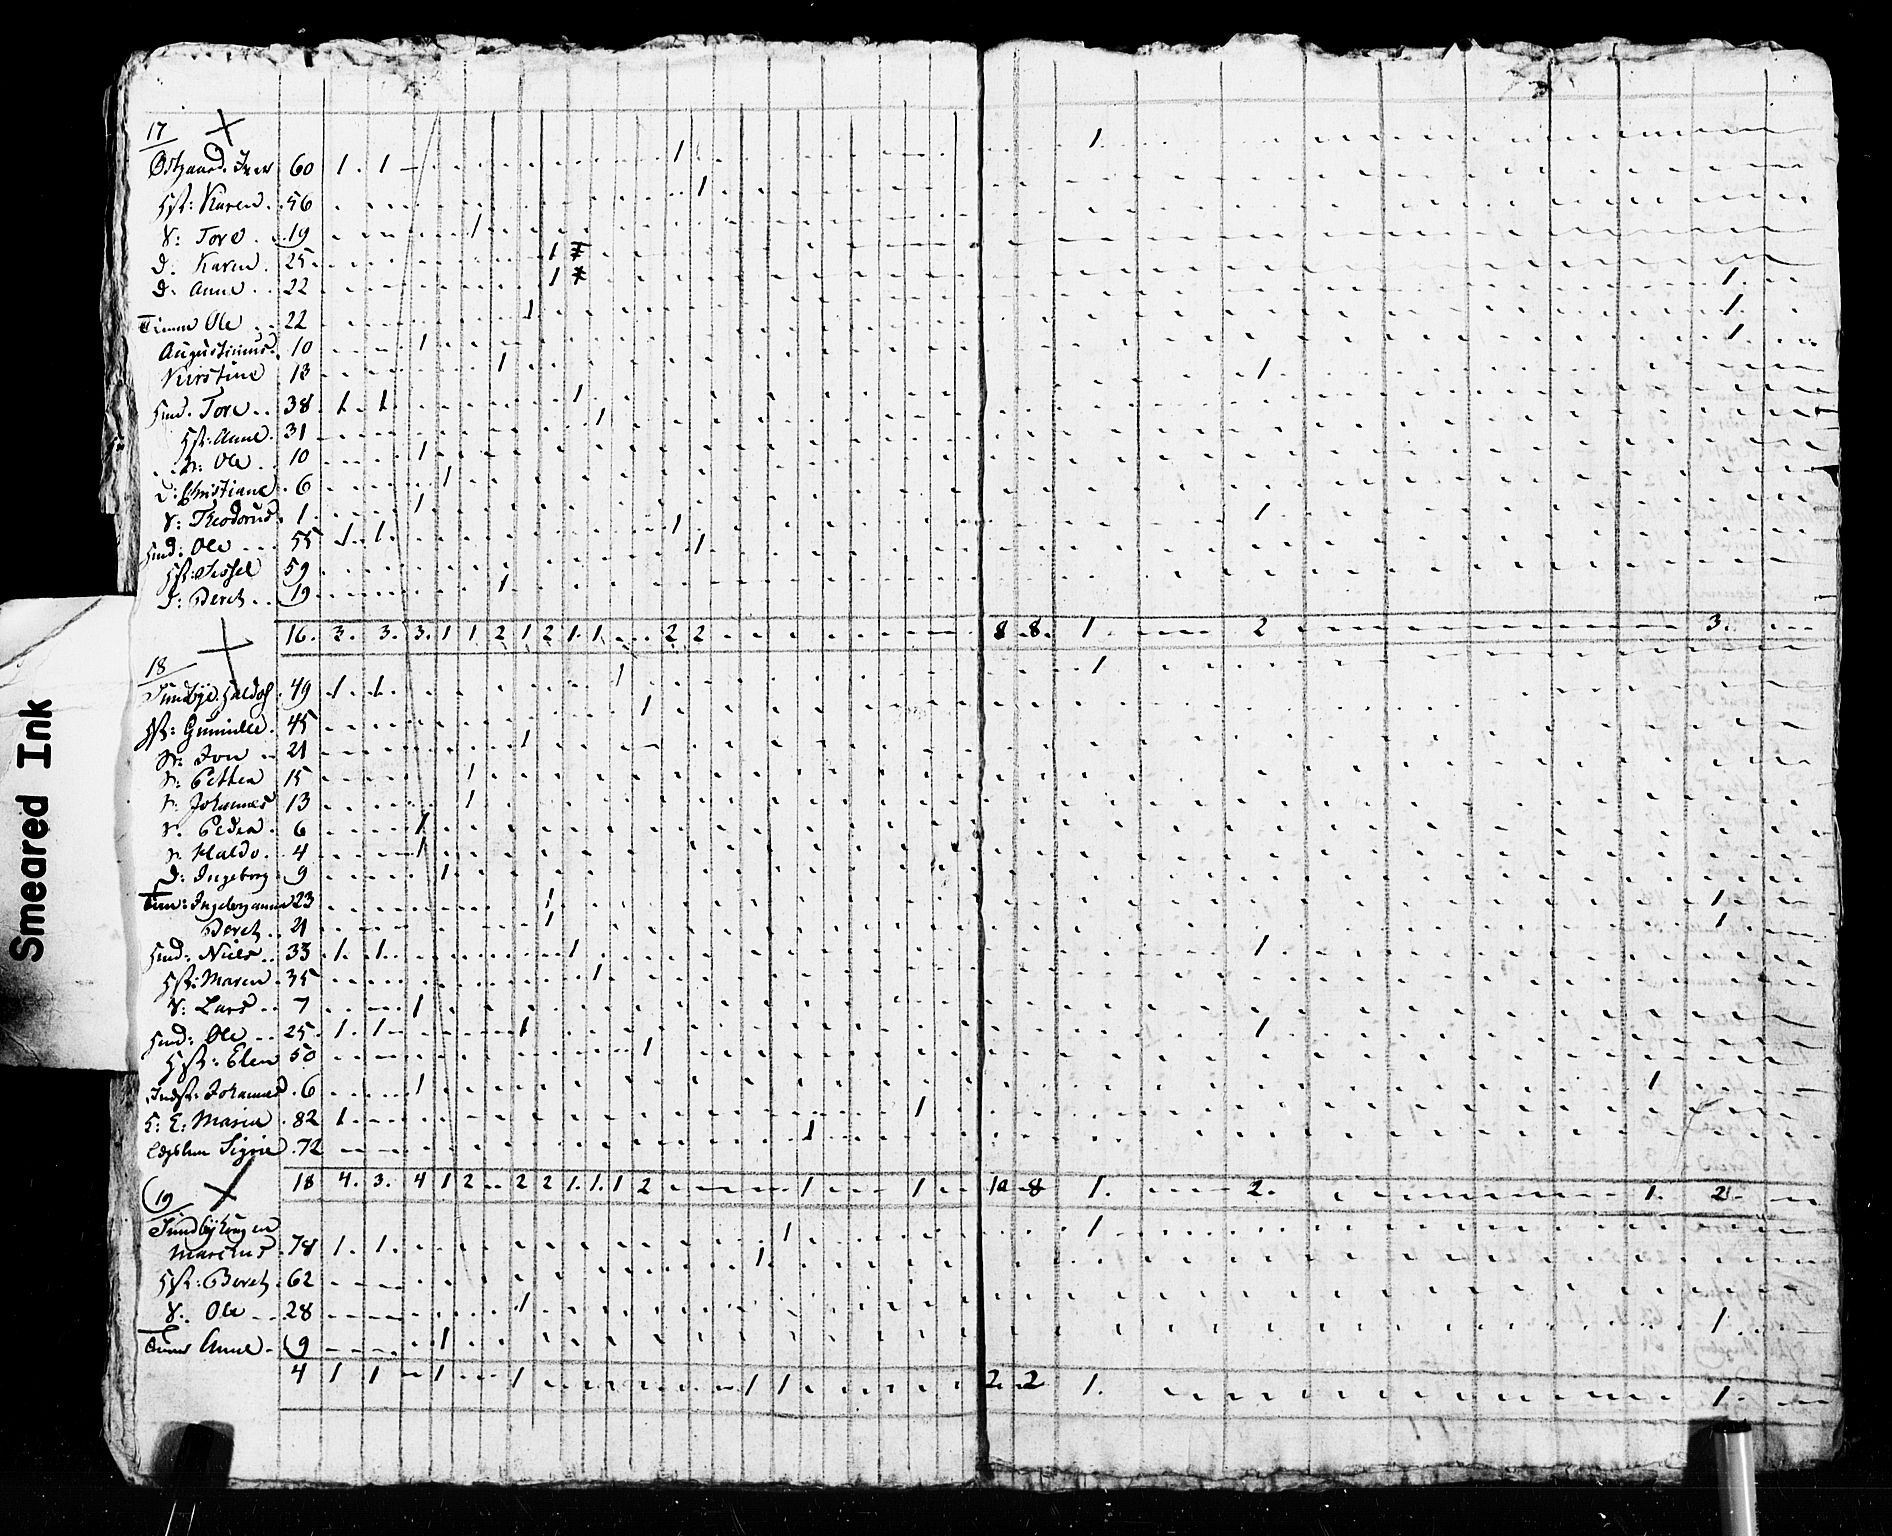 17
Østgaard. Iver 60 1. 1 1 1.
Hst: Karen 56 1
S: Tore 19 1
D: Karen 25 1
D: Anne 22 1 1.
Tienne Ole 22 1 1.
Augustinus 10 1 1
Kirstine 13 1
Hmd. Tore 38 1. 1. 1 1
Hst: Anne. 31 1
S: Ole 10 1
D: Christiane 6 1
S: Theodorus 1. 1
Hmd: Ole 55 1. 1. 1 1
Hst: Sissel 59 1
D: Beret 19 1
16. 3. 3. 3. 1 1. 2 1 2 1. 1 2 2 8 8. 1 2 3.
18
Sundbye. Haldo 49 1 1. 1 1
Hst: Gunnille. 45 1
S: Jon 21 1
S: Petter 15 1
S: Johannes 13 1
S. Peder 6 1
S. Haldo. 4 1
D: Ingeborg 9 1
Tien: Ingeborganna 23 1 1.
Beret 21 1 1.
Hmd: Niels 33 1. 1. 1 1
Hst: Maren. 35 1
S: Lars 7 1
Hmd: Ole 25 1. 1 1 1
Hst: Elen 50 1
Indst: Johannes 6 1 1
E: Maria 82 1. 1
Lægdslem Sigrie 72 1
18 4. 3. 4 1 2 2 2 1. 1. 1 2 1 1 10 8 1. 2. 1. 2
19
Sundbyhougen
Marcus 78 1. 1. 1 1
Hst: Beret 62 1
S: Ole 28 1
Tienne Anne 9 1 1
4 1 1 1 1 1 1 2 2 1. 1.
Smeared Ink